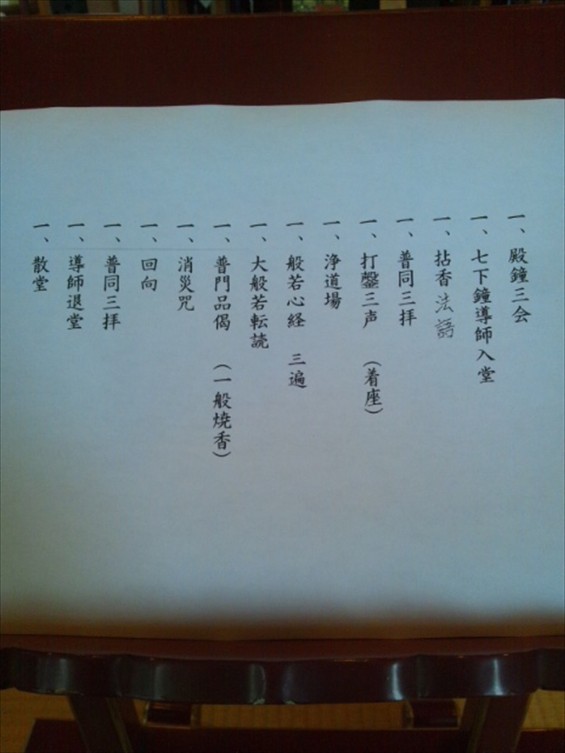 一、殿鐘三会
一、七下鐘導師入堂
一、拈香法語
一、普同三拝
一、打鏧三声（着座）
一、浄道場
一、般若心経　三遍
一、大般若転読
一、普門品偈（一般焼香）
一、消災咒
一、回向
一、普同三拝
一、導師退堂
一、散堂